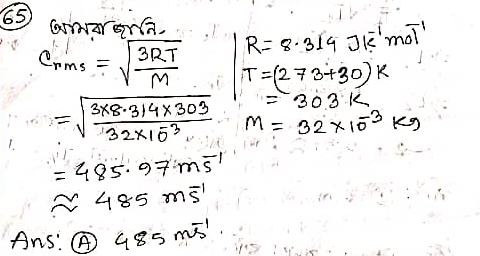 65
আমরা জানি,
C_rms = √(3RT/M)
= √(3×8.314×303/32×10⁻³)
= 485.97 ms⁻¹
≈ 485 ms⁻¹
Ans: Ⓐ 485 ms⁻¹.
R = 8.314 JK⁻¹mol⁻¹
T = (273+30) K
= 303 K
M = 32×10⁻³ Kg